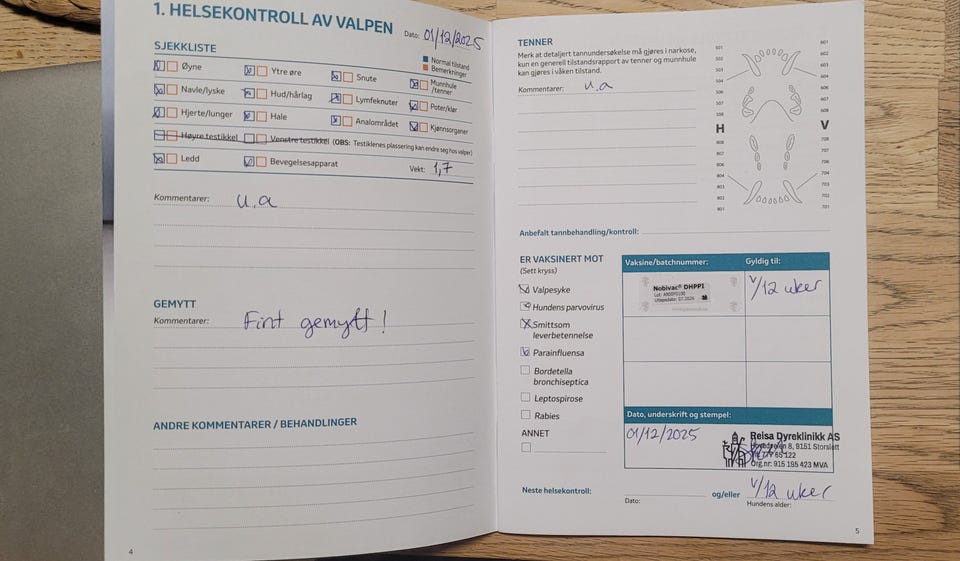 1. HELSEKONTROLL AV VALPEN
Dato: 01/12/2025
SJEKKLISTE
Normal tilstand
Bemerkninger
Øyne Ytre øre Snute Munnhule /tenner
Navle/lyske Hud/hårlag Lymfeknuter Poter/klør
Hjerte/lunger Hale Analområdet Kjønnsorganer
Høyre testikkel Venstre testikkel (OBS: Testiklenes plassering kan endre seg hos valper)
Ledd Bevegelsesapparat Vekt: 1,7
Kommentarer: u.a
GEMYTT
Kommentarer: Fint gemytt!
ANDRE KOMMENTARER / BEHANDLINGER
4
TENNER
Merk at detaljert tannundersøkelse må gjøres i narkose,
kun en generell tilstandsrapport av tenner og munnhule
kan gjøres i våken tilstand.
Kommentarer: u.a
501 601
502 602
503 603
504 604
H V
804 704
803 703
802 702
801 701
Anbefalt tannbehandling/kontroll:
ER VAKSINERT MOT
(Sett kryss)
Valpesyke
Hundens parvovirus
Smittsom
leverbetennelse
Parainfluensa
Bordetella
bronchiseptica
Leptospirose
Rabies
ANNET
Vaksine/batchnummer: Gyldig til:
Nobivac® DHPPI
v/12 uker
Dato, underskrift og stempel:
01/12/2025
Reisa Dyreklinikk AS
8, 9151 Storslett
65 122
Org.nr: 915 195 423 MVA
Neste helsekontroll: og/eller v/12 uker
Dato: Hundens alder:
5